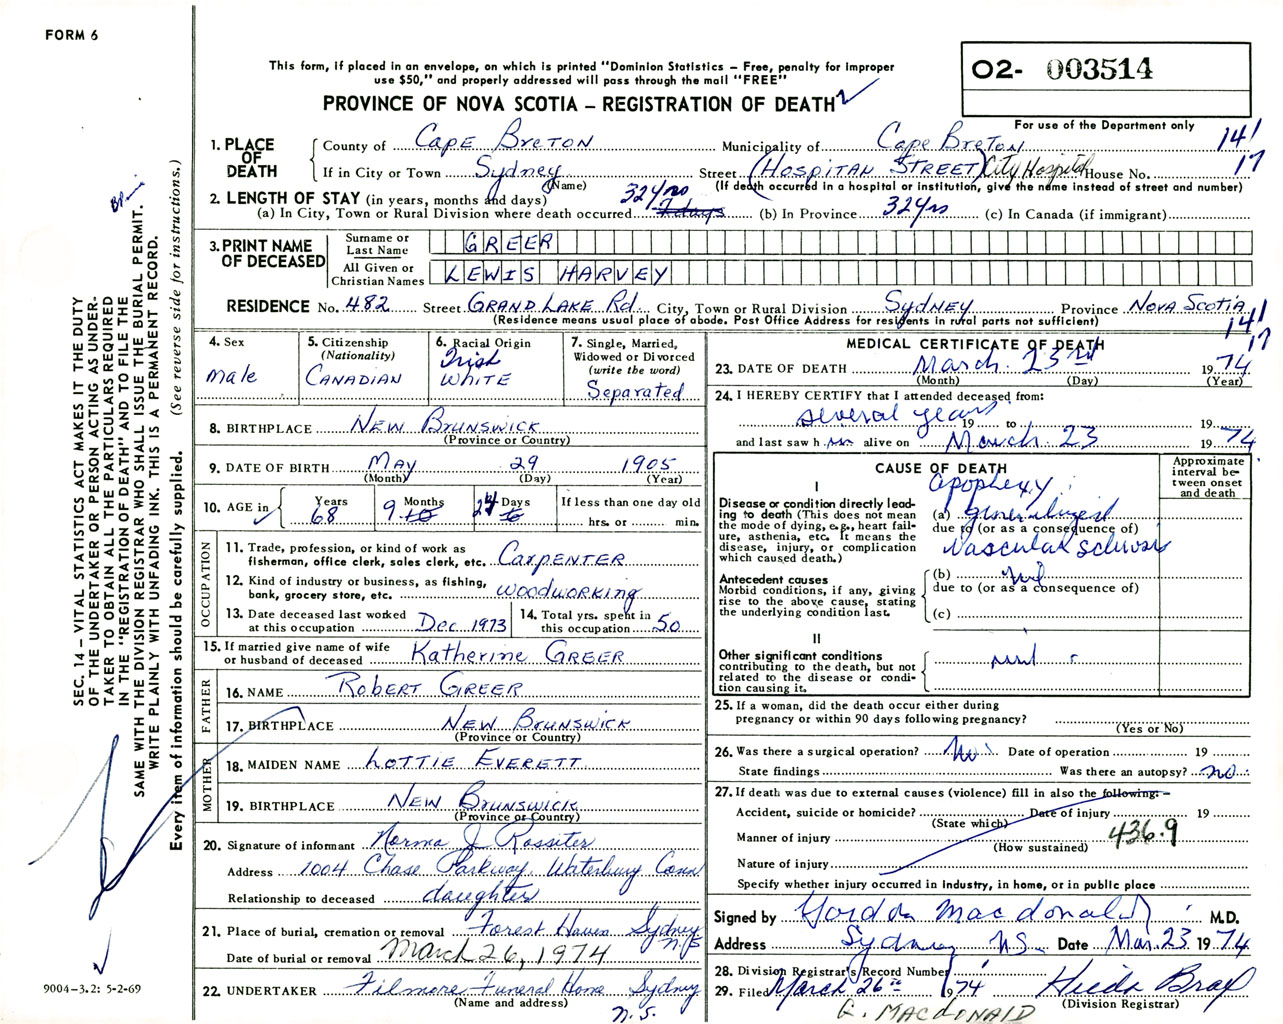 FORM 6
This form, if placed in an envelope, on which is printed "Dominion Statistics – Free, penalty for improper
use $50," and properly addressed will pass through the mail "FREE"
PROVINCE OF NOVA SCOTIA – REGISTRATION OF DEATH
O2- 003514
For use of the Department only
141
17
1. PLACE OF DEATH
County of Cape Breton Municipality of Cape Breton
If in City or Town Sydney Street (Hospital Street) City Hospital House No.
(Name) (If death occurred in a hospital or institution, give the name instead of street and number)
2. LENGTH OF STAY (in years, months and days)
(a) In City, Town or Rural Division where death occurred 32 yrs 7 days (b) In Province 32 yrs (c) In Canada (if immigrant)
3. PRINT NAME OF DECEASED
Surname or Last Name GREER
All Given or Christian Names LEWIS HARVEY
RESIDENCE No. 482 Street GRAND LAKE Rd. City, Town or Rural Division SYDNEY Province NOVA SCOTIA
(Residence means usual place of abode. Post Office Address for residents in rural parts not sufficient)
141
17
4. Sex male
5. Citizenship (Nationality) CANADIAN
6. Racial Origin Irish WHITE
7. Single, Married, Widowed or Divorced (write the word) Separated
8. BIRTHPLACE NEW BRUNSWICK
(Province or Country)
9. DATE OF BIRTH MAY 29 1905
(Month) (Day) (Year)
10. AGE in Years 68 Months 9 10 Days 24 If less than one day old hrs. or min.
OCCUPATION
11. Trade, profession, or kind of work as fisherman, office clerk, sales clerk, etc. CARPENTER
12. Kind of industry or business, as fishing, bank, grocery store, etc. woodworking
13. Date deceased last worked at this occupation Dec 1973
14. Total yrs. spent in this occupation 50
15. If married give name of wife or husband of deceased Katherine GREER
FATHER
16. NAME ROBERT GREER
17. BIRTHPLACE NEW BRUNSWICK
(Province or Country)
MOTHER
18. MAIDEN NAME LOTTIE EVERETT
19. BIRTHPLACE NEW BRUNSWICK
(Province or Country)
20. Signature of informant Norma J Rossiter
Address 1004 Chase Parkway, Waterbury Conn
Relationship to deceased daughter
21. Place of burial, cremation or removal Forest Haven Sydney N.S
Date of burial or removal March 26, 1974
22. UNDERTAKER Fillmore Funeral Home Sydney N.S.
(Name and address)
MEDICAL CERTIFICATE OF DEATH
23. DATE OF DEATH March 23rd 1974
(Month) (Day) (Year)
24. I HEREBY CERTIFY that I attended deceased from:
several years 19 to 19
and last saw h im alive on March 23 1974
CAUSE OF DEATH
Approximate interval between onset and death
I
Disease or condition directly leading to death (This does not mean the mode of dying, e.g., heart failure, asthenia, etc. It means the disease, injury, or complication which caused death.)
Apoplexy
(a) Generalized
due to (or as a consequence of)
Vascular sclerosis
Antecedent causes
Morbid conditions, if any, giving rise to the above cause, stating the underlying condition last.
(b) nil
due to (or as a consequence of)
(c)
II
Other significant conditions
contributing to the death, but not related to the disease or condition causing it.
nil
25. If a woman, did the death occur either during pregnancy or within 90 days following pregnancy?
(Yes or No)
26. Was there a surgical operation? No Date of operation 19
State findings Was there an autopsy? no
27. If death was due to external causes (violence) fill in also the following:–
Accident, suicide or homicide? Date of injury 19
(State which)
Manner of injury 436.9
(How sustained)
Nature of injury
Specify whether injury occurred in Industry, in home, or in public place
Signed by Gordon Macdonald M.D.
Address Sydney N.S. Date Mar. 23 1974
28. Division Registrar's Record Number
29. Filed March 26th 1974 Hilda Bray
(Division Registrar)
G. MACDONALD
SEC. 14 – VITAL STATISTICS ACT MAKES IT THE DUTY
OF THE UNDERTAKER OR PERSON ACTING AS UNDER-
TAKER TO OBTAIN ALL THE PARTICULARS REQUIRED
IN THE "REGISTRATION OF DEATH" AND TO FILE THE
SAME WITH THE DIVISION REGISTRAR WHO SHALL ISSUE THE BURIAL PERMIT.
WRITE PLAINLY WITH UNFADING INK. THIS IS A PERMANENT RECORD.
Every item of information should be carefully supplied. (See reverse side for instructions.)
9004-3.2: 5-2-69